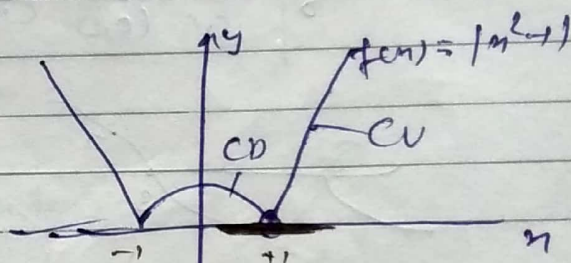 y
f(x) = |x²-1|
CU
CD
-1 +1 x